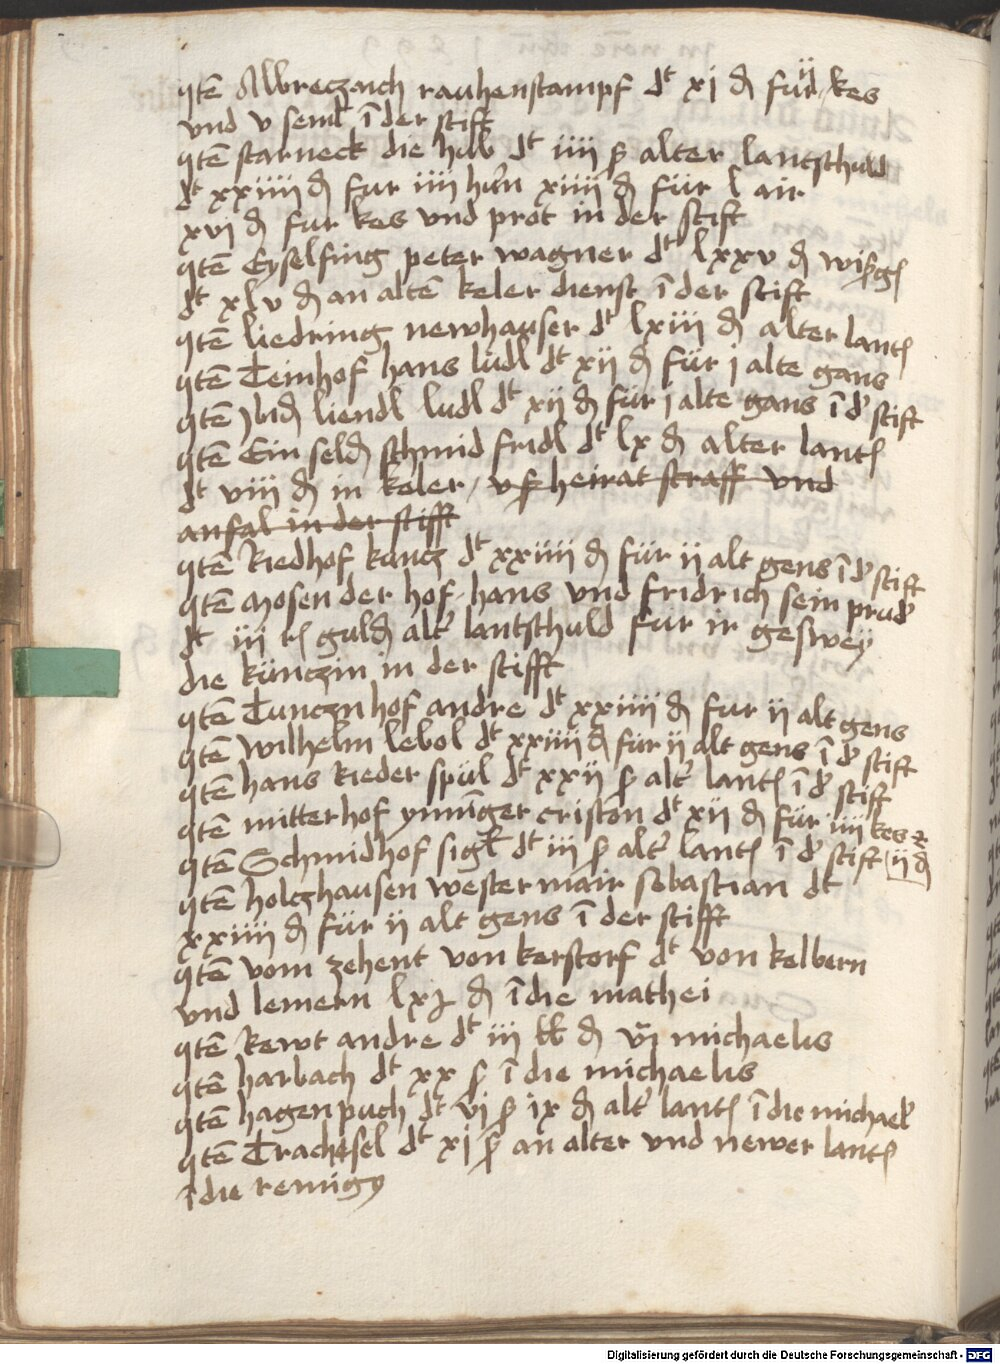 Itē Albreczaich rauhenstampf dt xj ₰ für kes
vnd v seml ī der stift
Itē starneck die hub dt iiii ß alter lantschuld
dt xxiiii ₰ fur iiii hūn xiiii ₰ für l air
xvj ₰ fur kes vnd prot in der stift
Itē Eyselfing peter wagner dt lxxv ₰ wißgſ
dt xlv ₰ an altē keler dienst ī der stift
Itē liedring newhauser dt lxiii ₰ alter lantſ
Itē Temhof hans ludl dt xii ₰ für j alte gans
Itē ibid liendl ludl dt xij ₰ für j alte gans ī dˀ stift
Itē Ein seld schmid fridl dt lx ₰ alter lantſ
dt viii ₰ in keler / vſ heirat straff vnd
anfal in der stifft
Itē Riedhof kuncz dt xxiiii ₰ für ij alt gens ī dˀ stift
Itē Mosen der hof hans vnd fridrich sein prudˀ
dt iii rſ guld altˀ lantschuld für ir geswey
die künczin in der stifft
Itē Tunczn hof andre dt xxiiii ₰ fur ij alt gens
Itē wilhelm lebol dt xxiiii ₰ für ij alt gens ī dˀ stift
Itē hans Rieder spül dt xxij ß altˀ lantſ ī dˀ stift
Itē mitterhof ynnīger criston dt xij ₰ für iiii kes
Itē Schmidhof sigl dt iii ß altˀ lantſ ī dˀ stift / ij ₰
Itē holczhausen westermair sebastian dt
xxiiii ₰ für ij alt gens ī der stifft
Itē vom zehent von kerstorf dt von kelbern
vnd lemern lxj ₰ ī die mathei
Itē Rewt andre dt iii lb ₰ michaelis
Itē harbach dt xx ß ī die michaelis
Itē hagenpuch dt vj ß ix ₰ altˀ lantſ ī die michaelˀ
Itē Trachtsel dt xj ß an alter vnd newer lantſ
ī die remigy
Digitalisierung gefördert durch die Deutsche Forschungsgemeinschaft - DFG